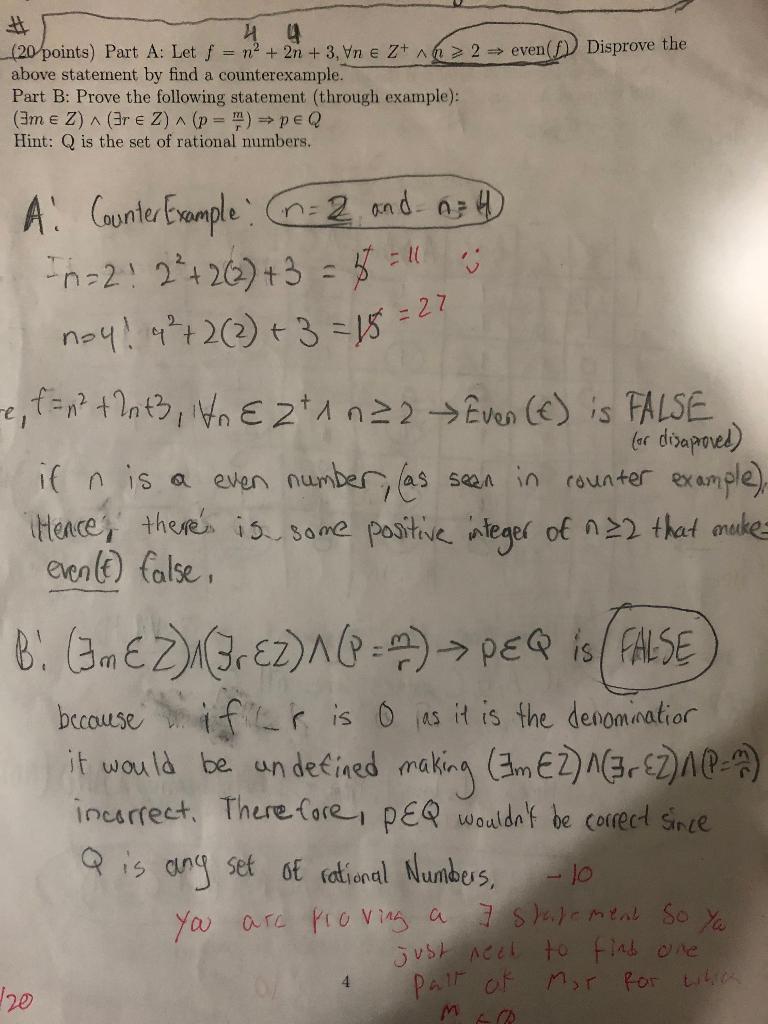 #
4 4
(20 points) Part A: Let f = n² + 2n + 3, ∀n ∈ Z⁺ ∧ n ⩾ 2 ⇒ even(f) Disprove the
above statement by find a counterexample.
Part B: Prove the following statement (through example):
(∃m ∈ Z) ∧ (∃r ∈ Z) ∧ (p = m/r) ⇒ p ∈ Q
Hint: Q is the set of rational numbers.
A: Counter Example: n=2 and n=4
n=2: 2² + 2(2) + 3 = = 11 :)
n=4: 4² + 2(2) + 3 = 15 = 27
re, f=n²+2n+3, ∀n ∈ Z⁺ ∧ n ≥ 2 → Even(f) is FALSE
(or disaproved)
if n is a even number, (as seen in counter example),
Hence, there is some positive integer of n≥2 that makes
even(f) false.
B: (∃m∈Z)∧(∃r∈Z)∧(P=m/r) → p∈Q is FALSE
because if r is 0 as it is the denominatior
it would be undefined making (∃m∈Z)∧(∃r∈Z)∧(P=m/r)
incorrect. Therefore, p∈Q wouldn't be correct since
Q is any set of rational Numbers. -10
You are proving a ∃ statement so you
just need to find one
4 pair of m,r for which
/20 m ∈ Q